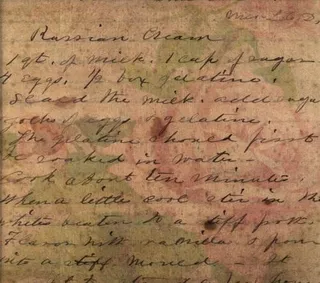 Russian Cream
1 qt. of milk. 1 cup of sugar
4 eggs. ½ box gelatine.
Scald the milk. add sugar
yolks of eggs & gelatine.
The gelatine should first
be soaked in water -
Cook about ten minutes.
When a little cool stir in the
whites beaten to a stiff froth.
Flavor with vanilla & pour
into a mould -